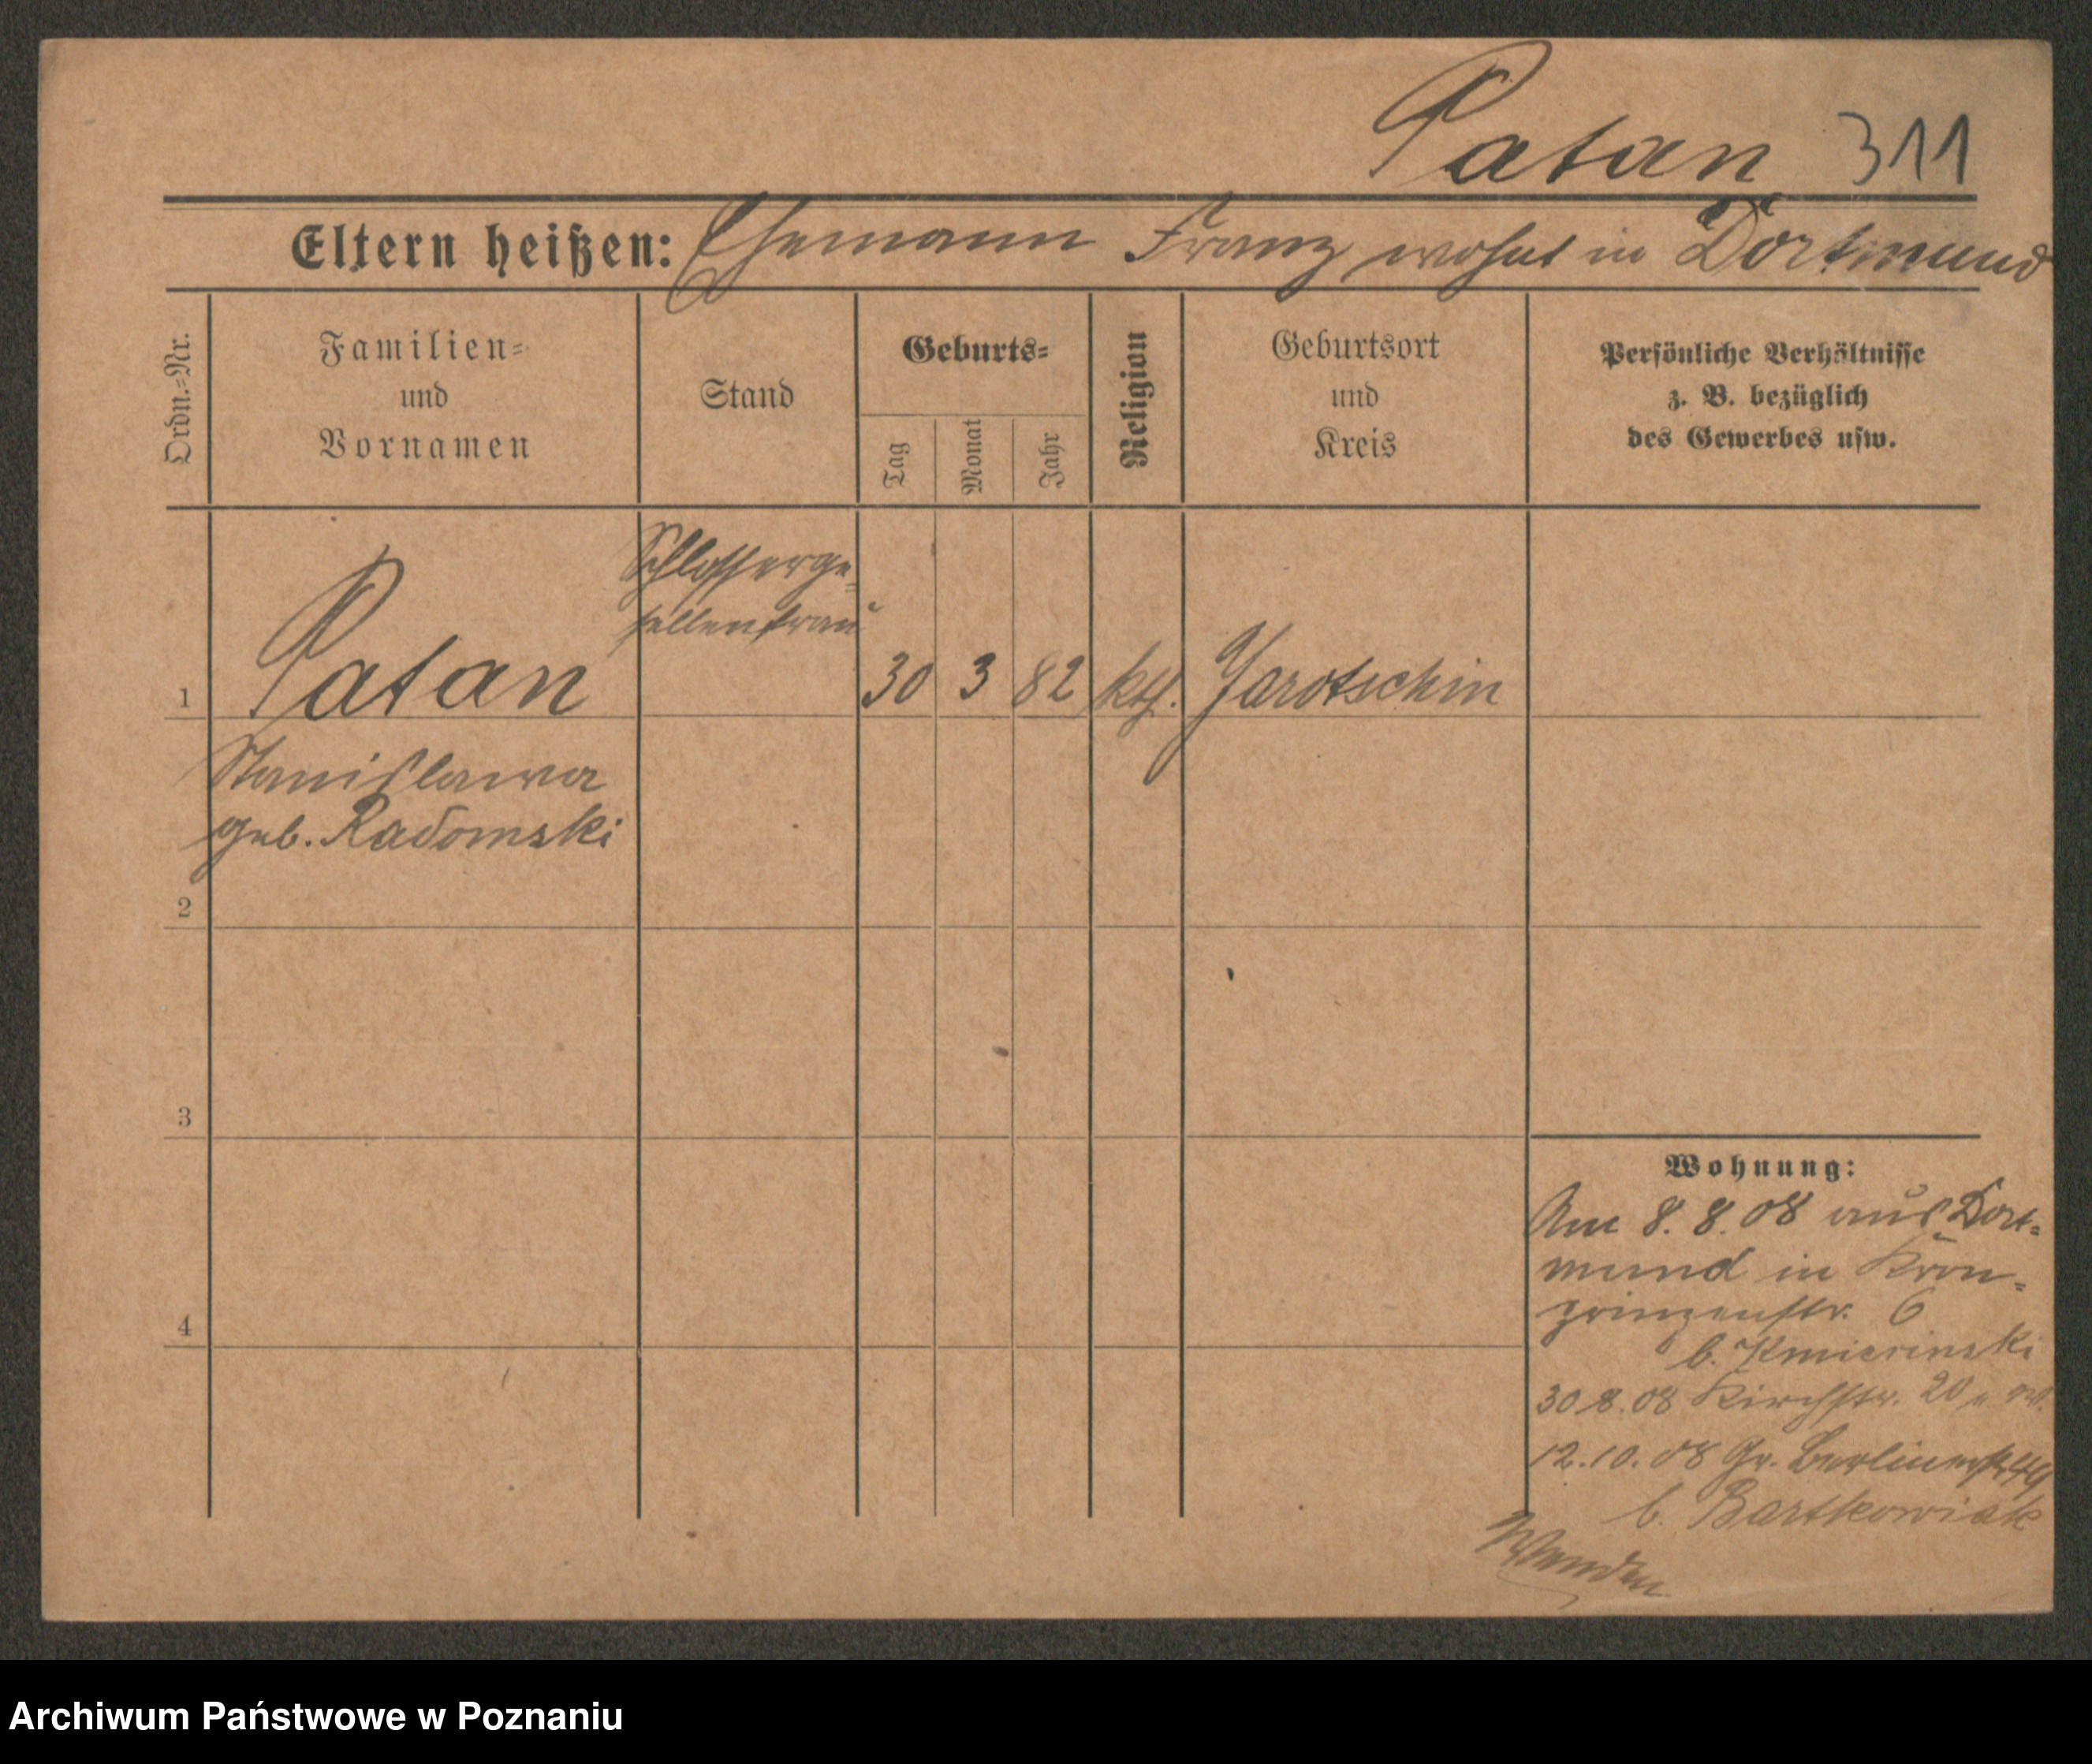 Patan 311
Eltern heißen: Ehemann Franz wohnt in Dortmund
Ordn.-Nr.
Familien-
und
Vornamen
Stand
Geburts-
Tag
Monat
Jahr
Religion
Geburtsort
und
Kreis
Persönliche Verhältnisse
z. B. bezüglich
des Gewerbes usw.
Schlosserge-
sellenfrau
1 Patan 30 3 82 kth. Jarotschin
Stanislawa
geb. Radomski
2
3
4
Wohnung:
Am 8. 8. 08 aus Dort-
mund in Kron-
prinzenstr. 6
b.
30.8.08 Kirchstr. 20
12.10.08 Gr. Berlinerstr.
b. Bartkowiak
Wenden
Archiwum Państwowe w Poznaniu